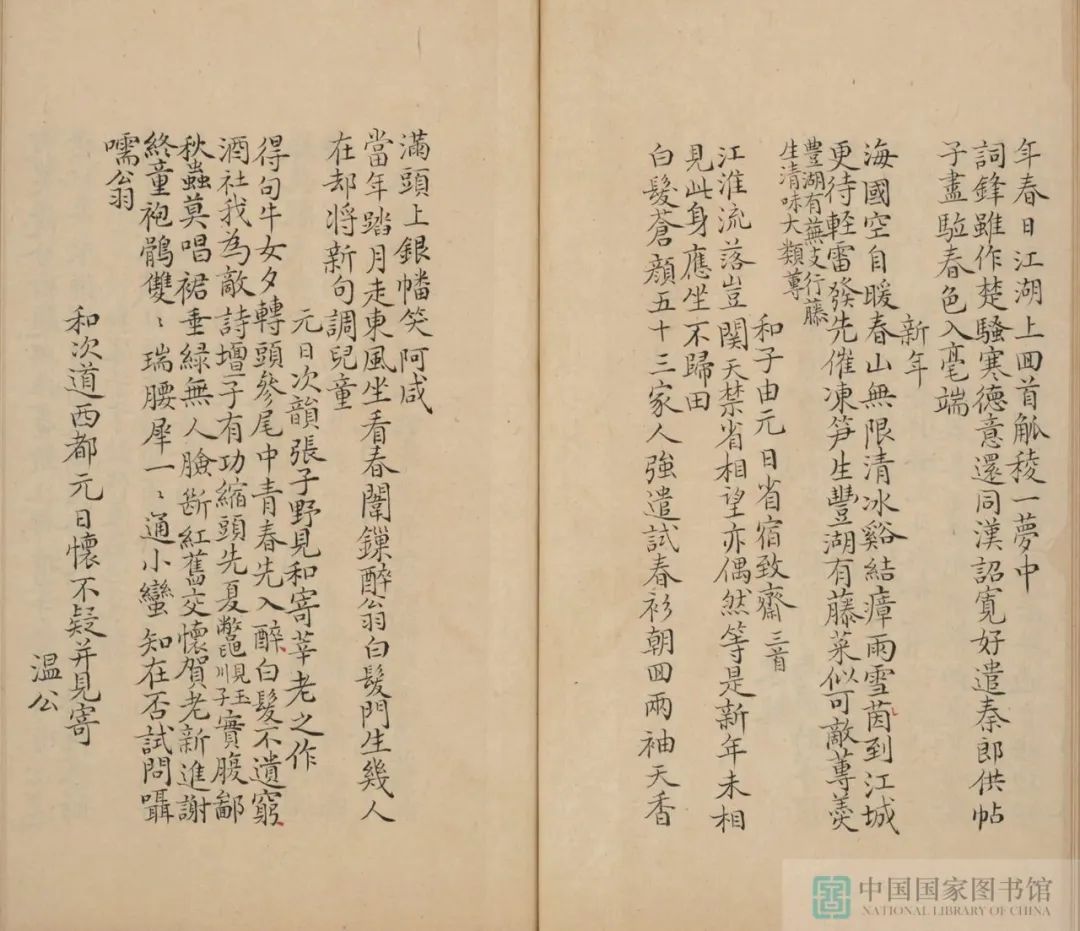 年春日江湖上回首觚稜一夢中
詞鋒雖作楚騷寒德意還同漢詔寬好遣秦郎供帖
子盡驅春色入毫端
新年
海國空自暖春山無限清冰谿結瘴雨雪茵到江城
更待輕雷發先催凍笋生豐湖有藤菜似可敵蓴羹
豊湖有蕪支行藤
生清味大類蓴
和子由元日省宿致齋三首
江淮流落豈関天禁省相望亦偶然等是新年未相
見此身應坐不歸田
白髮蒼顔五十三家人強遣試春衫朝回兩袖天香
滿頭上銀幡笑阿咸
當年踏月走東風坐看春闈鏁醉翁白髮門生幾人
在却將新句調兒童
元日次韻張子野見和寄莘老之作
得句牛女夕轉頭參尾中青春先入醉白髮不遺窮
酒社我為敵詩壇子有功縮頭先夏鼈見玉川子實腹鄙
秋蟲莫唱裙垂緑無人臉斷紅舊交懷賀老新進謝
終童袍鶻雙〻瑞腰犀一〻通小蠻知在否試問囁
嚅翁
和次道西都元日懷不疑并見寄
温公
中国国家图书馆
NATIONAL LIBRARY OF CHINA